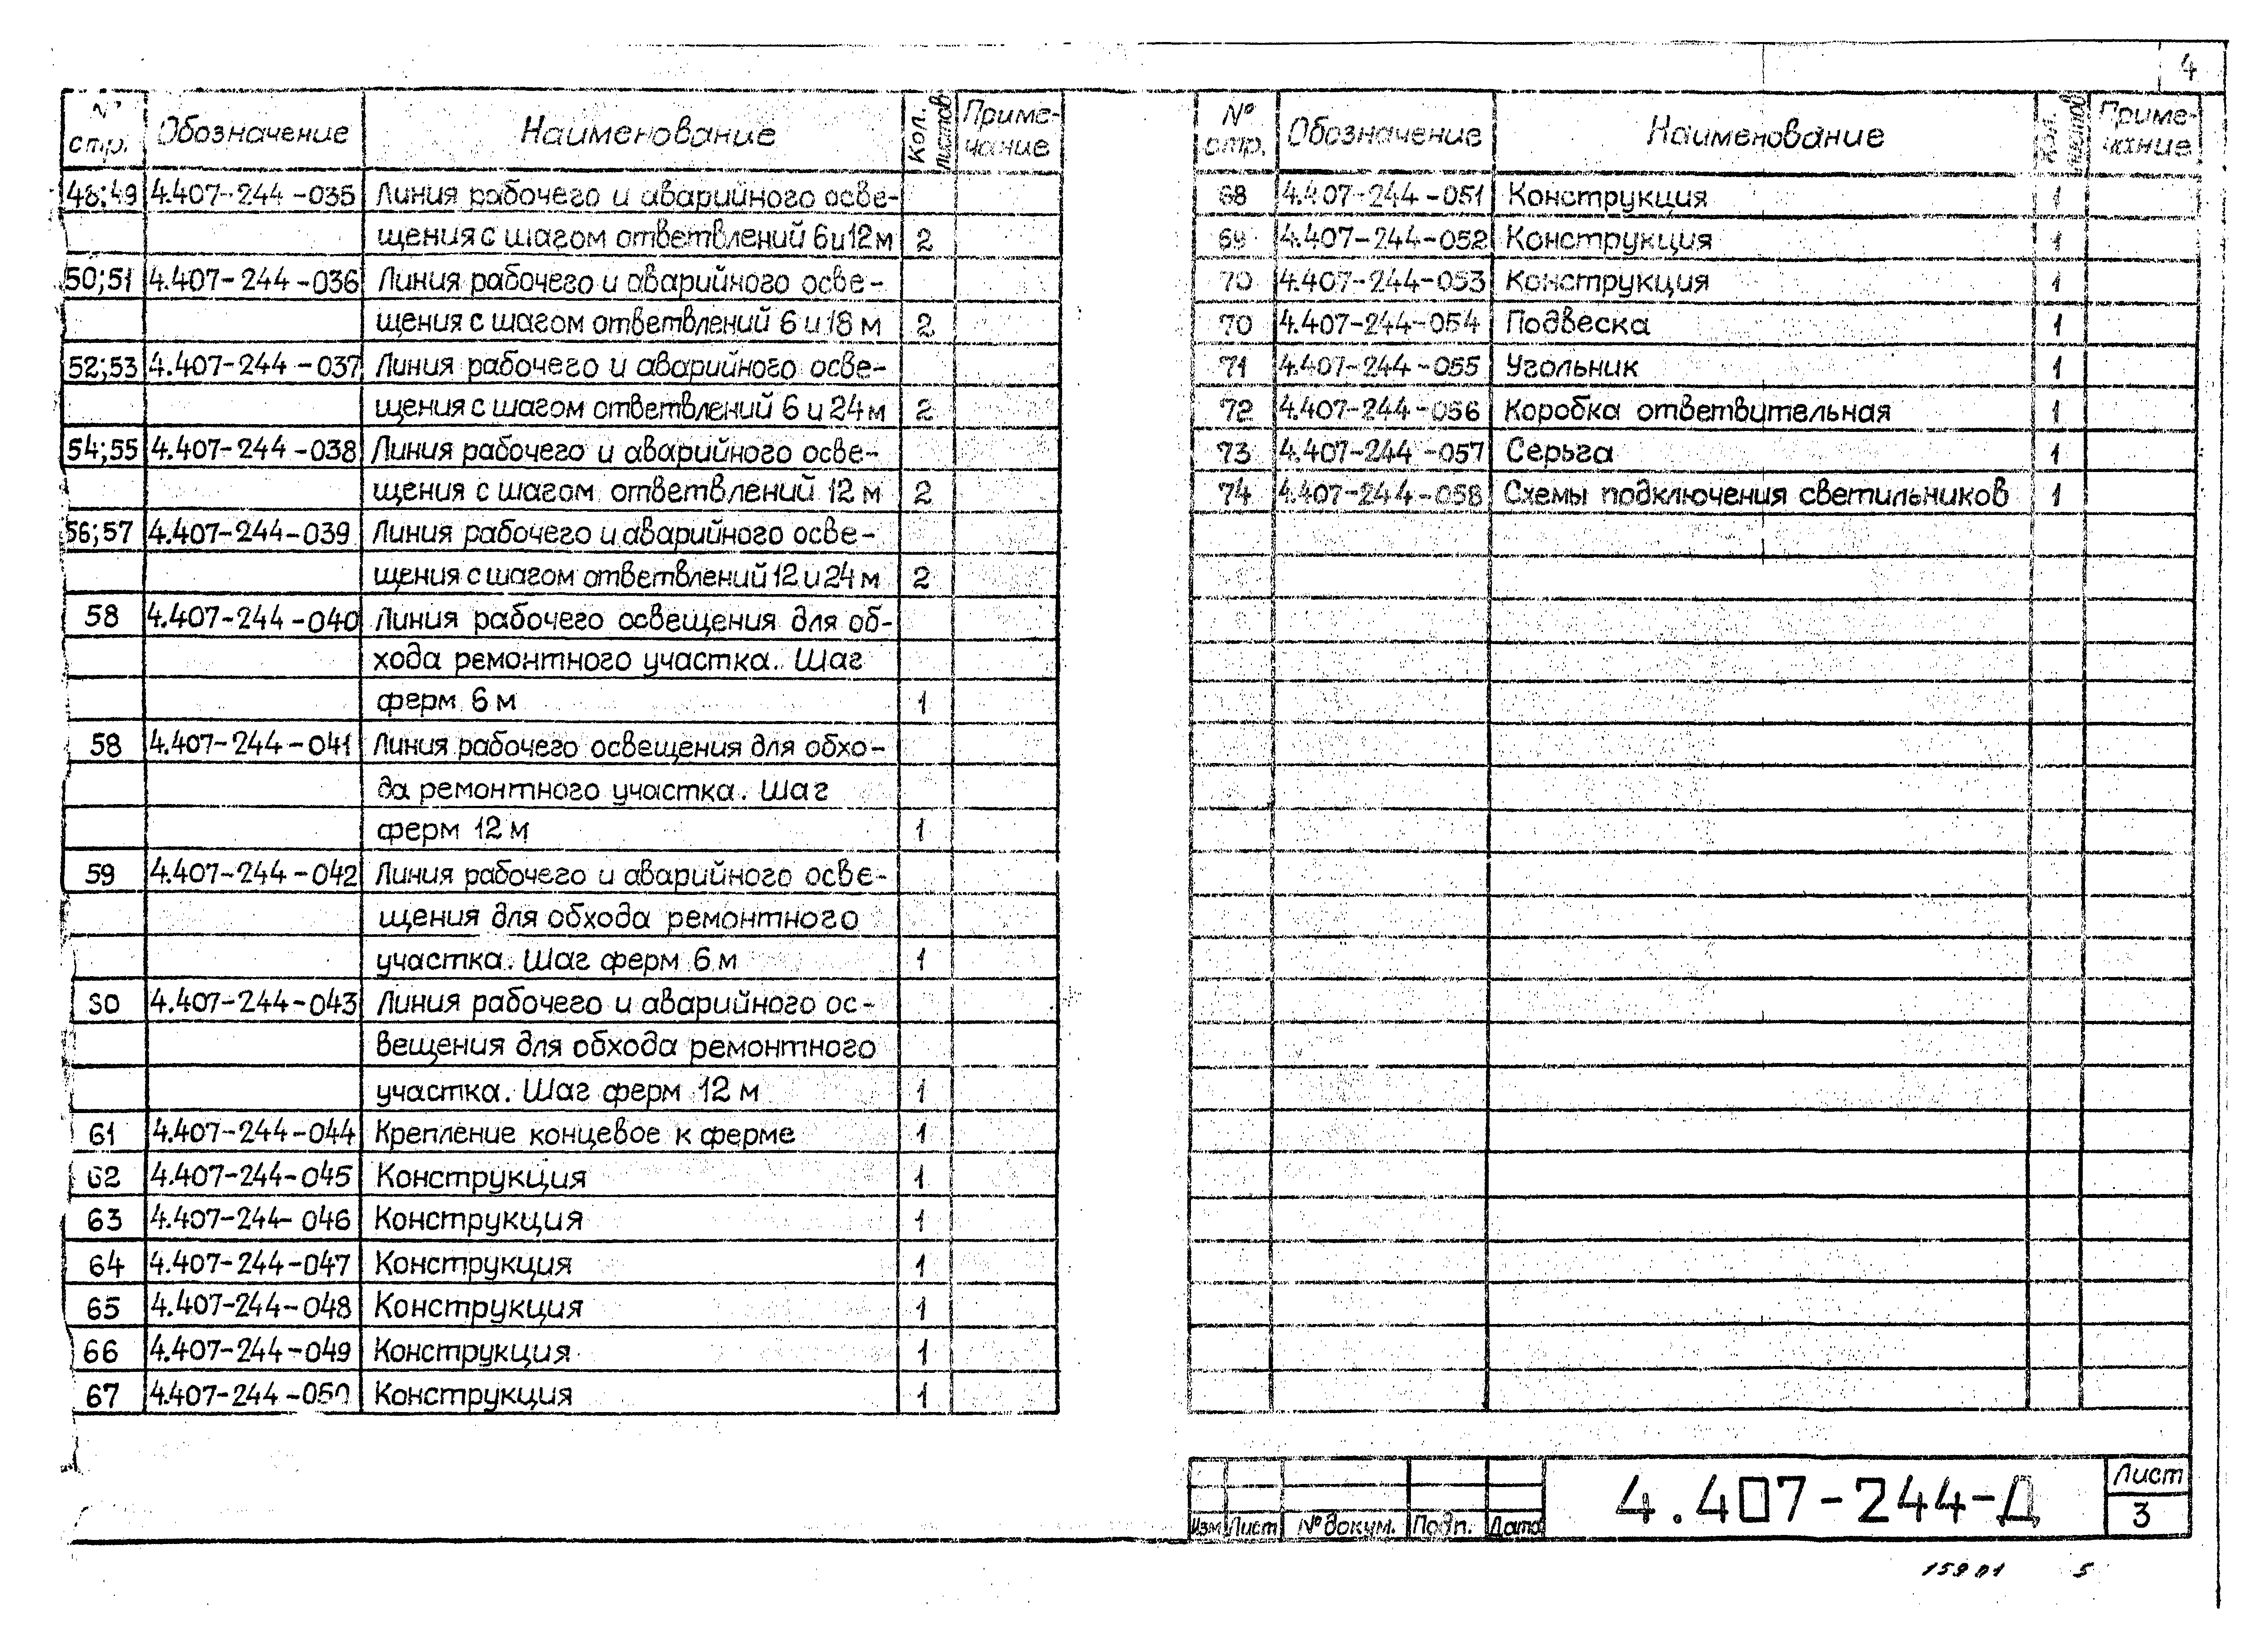 4
№ стр. Обозначение Наименование Кол. листов Приме-
чание
48;49 4.407-244-035 Линия рабочего и аварийного осве-
щения с шагом ответвлений 6 и 12 м 2
50;51 4.407-244-036 Линия рабочего и аварийного осве-
щения с шагом ответвлений 6 и 18 м 2
52;53 4.407-244-037 Линия рабочего и аварийного осве-
щения с шагом ответвлений 6 и 24 м 2
54;55 4.407-244-038 Линия рабочего и аварийного осве-
щения с шагом ответвлений 12 м 2
56;57 4.407-244-039 Линия рабочего и аварийного осве-
щения с шагом ответвлений 12 и 24 м 2
58 4.407-244-040 Линия рабочего освещения для об-
хода ремонтного участка. Шаг
ферм 6 м 1
58 4.407-244-041 Линия рабочего освещения для обхо-
да ремонтного участка. Шаг
ферм 12 м 1
59 4.407-244-042 Линия рабочего и аварийного осве-
щения для обхода ремонтного
участка. Шаг ферм 6 м 1
30 4.407-244-043 Линия рабочего и аварийного ос-
вещения для обхода ремонтного
участка. Шаг ферм 12 м 1
61 4.407-244-044 Крепление концевое к ферме 1
62 4.407-244-045 Конструкция 1
63 4.407-244-046 Конструкция 1
64 4.407-244-047 Конструкция 1
65 4.407-244-048 Конструкция 1
66 4.407-244-049 Конструкция 1
67 4.407-244-050 Конструкция 1
№ стр. Обозначение Наименование Кол. листов Приме-
чание
68 4.407-244-051 Конструкция 1
69 4.407-244-052 Конструкция 1
70 4.407-244-053 Конструкция 1
70 4.407-244-054 Подвеска 1
71 4.407-244-055 Угольник 1
72 4.407-244-056 Коробка ответвительная 1
73 4.407-244-057 Серьга 1
74 4.407-244-058 Схемы подключения светильников 1
Изм Лист № докум. Подп. Дата
4.407-244-Д
Лист
3
15901 5